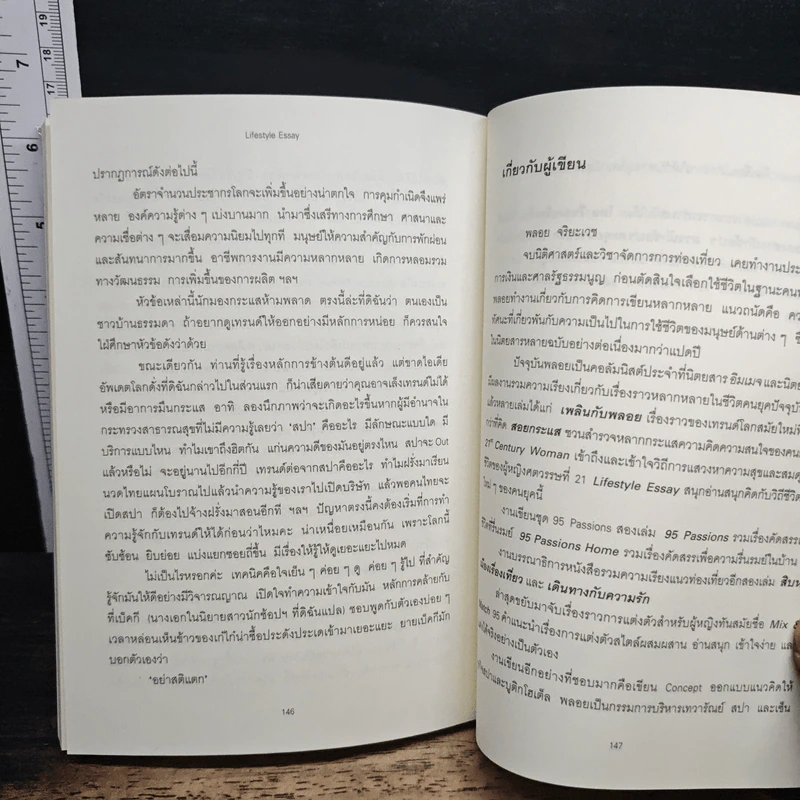 7
6
19
18
17
Lifestyle Essay
ปรากฏการณ์ดังต่อไปนี้
อัตราจำนวนประชากรโลกจะเพิ่มขึ้นอย่างน่าตกใจ การคุมกำเนิดจึงแพร่
หลาย องค์ความรู้ต่าง ๆ เบ่งบานมาก นำมาซึ่งเสรีทางการศึกษา ศาสนาและ
ความเชื่อต่าง ๆ จะเสื่อมความนิยมไปทุกที มนุษย์ให้ความสำคัญกับการพักผ่อน
และสันทนาการมากขึ้น อาชีพการงานมีความหลากหลาย เกิดการหลอมรวม
ทางวัฒนธรรม การเพิ่มขึ้นของการผลิต ฯลฯ
หัวข้อเหล่านี้นักมองกระแสห้ามพลาด ตรงนี้ล่ะที่ดิฉันว่า ตนเองเป็น
ชาวบ้านธรรมดา ถ้าอยากดูเทรนด์ให้ออกอย่างมีหลักการหน่อย ก็ควรสนใจ
ใฝ่ศึกษาหัวข้อดังว่าด้วย
ขณะเดียวกัน ท่านที่รู้เรื่องหลักการข้างต้นดีอยู่แล้ว แต่ขาดไอเดีย
อัพเดตโลกดั่งที่ดิฉันกล่าวไปในส่วนแรก ก็น่าเสียดายว่าคุณอาจเล็งเทรนด์ไม่ได้
หรือมีอาการมึนกระแส อาทิ ลองนึกภาพว่าจะเกิดอะไรขึ้นหากผู้มีอำนาจใน
กระทรวงสาธารณสุขที่ไม่มีความรู้เลยว่า "สปา" คืออะไร มีลักษณะแบบใด มี
บริการแบบไหน ทำไมเขาถึงฮิตกัน แก่นความดีของมันอยู่ตรงไหน สปาจะ Out
แล้วหรือไม่ จะอยู่นานไปอีกกี่ปี เทรนด์ต่อจากสปาคืออะไร ทำไมฝรั่งมาเรียน
นวดไทยแผนโบราณไปแล้วนำความรู้ของเราไปเปิดบริษัท แล้วพอคนไทยจะ
เปิดสปา ก็ต้องไปจ้างฝรั่งมาสอนอีกที ฯลฯ ปัญหาตรงนี้คงต้องเริ่มที่การทำ
ความรู้จักกับเทรนด์ให้ได้ก่อนว่าไหมคะ น่าเหนื่อยเหมือนกัน เพราะโลกนี้
ซับซ้อน ยิบย่อย แบ่งแยกซอยถี่ขึ้น มีเรื่องให้รู้ให้ดูเยอะแยะไปหมด
ไม่เป็นไรหรอกค่ะ เทคนิคคือใจเย็น ๆ ค่อย ๆ ดู ค่อย ๆ รู้ไป ที่สำคัญ
รู้จักมันให้ดีอย่างมีวิจารณญาณ เปิดใจทำความเข้าใจกับมัน หลักการคล้ายกับ
ที่เบ็คกี้ (นางเอกในนิยายสาวนักช้อปฯ ที่ดิฉันแปล) ชอบพูดกับตัวเองบ่อย ๆ
เวลาหล่อนเห็นข้าวของเก๋ไก๋น่าซื้อประดังประเดเข้ามาเยอะแยะ ยายเบ็คกี้มัก
บอกตัวเองว่า
"อย่าสติแตก"
146
เกี่ยวกับผู้เขียน
พลอย จริยะเวช
จบนิติศาสตร์และวิชาจัดการการท่องเที่ยว เคยทำงานประ
การเงินและศาลรัฐธรรมนูญ ก่อนตัดสินใจเลือกใช้ชีวิตในฐานะคน
พลอยทำงานเกี่ยวกับการคิดการเขียนหลากหลาย แนวถนัดคือ ควา
ทัศนะที่เกี่ยวพันกับความเป็นไปในการใช้ชีวิตของมนุษย์ด้านต่าง ๆ
ในนิตยสารหลายฉบับอย่างต่อเนื่องมากว่าแปดปี
ปัจจุบันพลอยเป็นคอลัมนิสต์ประจำที่นิตยสาร อิมเมจ และนิตย
มีผลงานรวมความเรียงเกี่ยวกับเรื่องราวหลากหลายในชีวิตคนยุคปัจจุบั
แล้วหลายเล่มได้แก่ เพลินกับพลอย เรื่องราวของเทรนด์โลกสมัยใหม่
กว่าที่คิด สอยกระแส ชวนสำรวจหลากกระแสความคิดความสนใจของคน
21st Century Woman เข้าถึงและเข้าใจวิถีการแสวงหาความสุขและสมดุ
ชีวิตของผู้หญิงศตวรรษที่ 21 Lifestyle Essay สนุกอ่านสนุกคิดกับวิถีชีวิต
ใหม่ ๆ ของคนยุคนี้
งานเขียนชุด 95 Passions สองเล่ม 95 Passions รวมเรื่องคัดสรร
ชีวิตที่รื่นรมย์ 95 Passions Home รวมเรื่องคัดสรรเพื่อความรื่นรมย์ในบ้าน
งานบรรณาธิการหนังสือรวมความเรียงแนวท่องเที่ยวอีกสองเล่ม สิบห
เมืองเรื่องเที่ยว และ เดินทางกับความรัก
ล่าสุดขยับมาจับเรื่องราวการแต่งตัวสำหรับผู้หญิงทันสมัยชื่อ Mix
Match 95 คำแนะนำเรื่องการแต่งตัวสไตล์ผสมผสาน อ่านสนุก เข้าใจง่าย และ
ได้จริงอย่างเป็นตัวเอง
งานเขียนอีกอย่างที่ชอบมากคือเขียน Concept ออกแบบแนวคิดให้
สปาและบูติกโฮเต็ล พลอยเป็นกรรมการบริหารเทวารัณย์ สปา และเซ็น
147